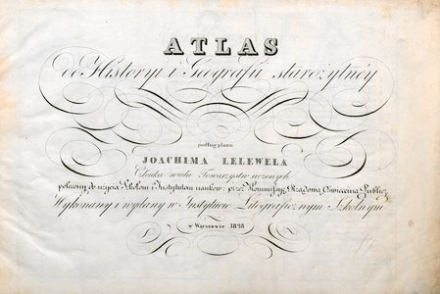 ATLAS
do Historyi i Geografii starożytnéy
podług planu
JOACHIMA LELEWELA
Członka wielu Towarzystw uczonych
polecony do użycia Szkołom i Instytutom naukow: przez Kommissyę Rządową Oświecenia Publicz:
Wykonany i wydany w Instytucie Litograficznym Szkolnym
w Warszawie 1828